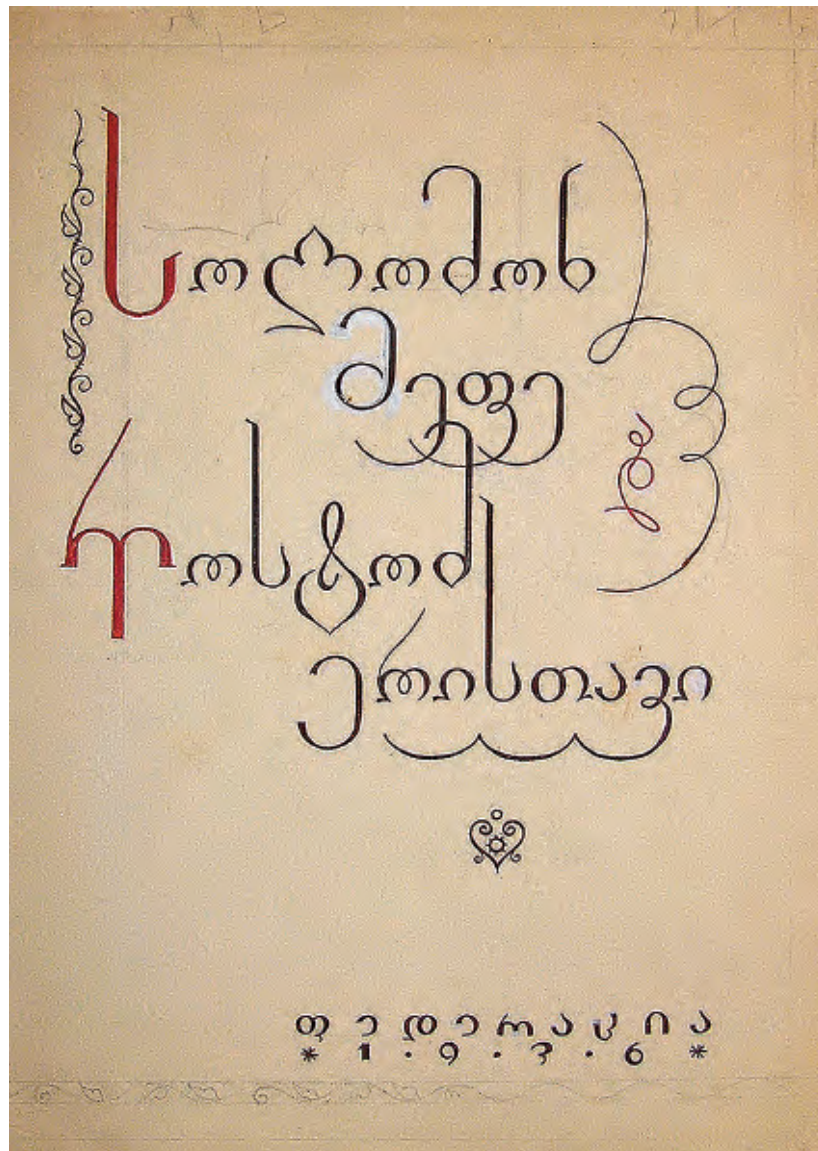 სოლომონ
მეფე
და
როსტომ
ერისთავი
ფედერაცია
* 1 . 9 . 3 . 6 *